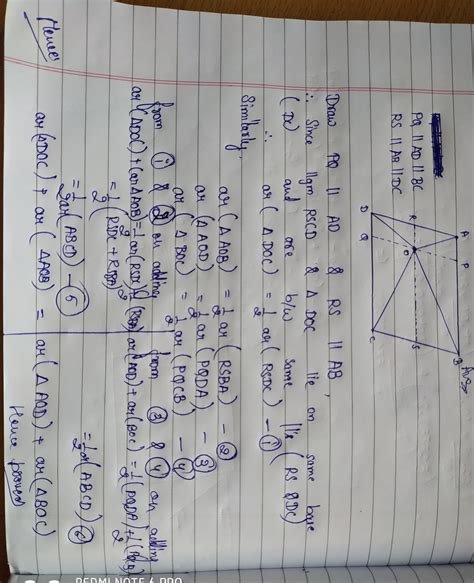 Ans
PQ || AD || BC
RS || AB || DC
A P B
R O S
D Q C
Draw PQ || AD & RS || AB,
∴ Since ||gm RSCD & Δ DOC lie on same base
(DC) and are b/w same ||'s (RS & DC)
∴ ar (Δ DOC) = 1/2 ar (RSDC) - ①
Similarly,
ar (Δ AOB) = 1/2 ar (RSBA) - ②
ar (Δ AOD) = 1/2 ar (PQDA) - ③
ar (Δ BOC) = 1/2 ar (PQCB) - ④
from ① & ② on adding
ar (ΔDOC) + (ar ΔAOB) = 1/2 ar (RSDC) + 1/2 (RSBA)
= 1/2 (RSDC + RSBA)
= 1/2 ar (ABCD) - ⑤
from ③ & ④ on adding
ar (AOD) + ar (BOC) = 1/2 (PQDA) + 1/2 (PQCB)
= 1/2 ar (ABCD) ⑥
Hence
ar (ΔDOC) + ar (ΔAOB) = ar (Δ AOD) + ar (ΔBOC)
Hence proved
REDMI NOTE 6 PRO